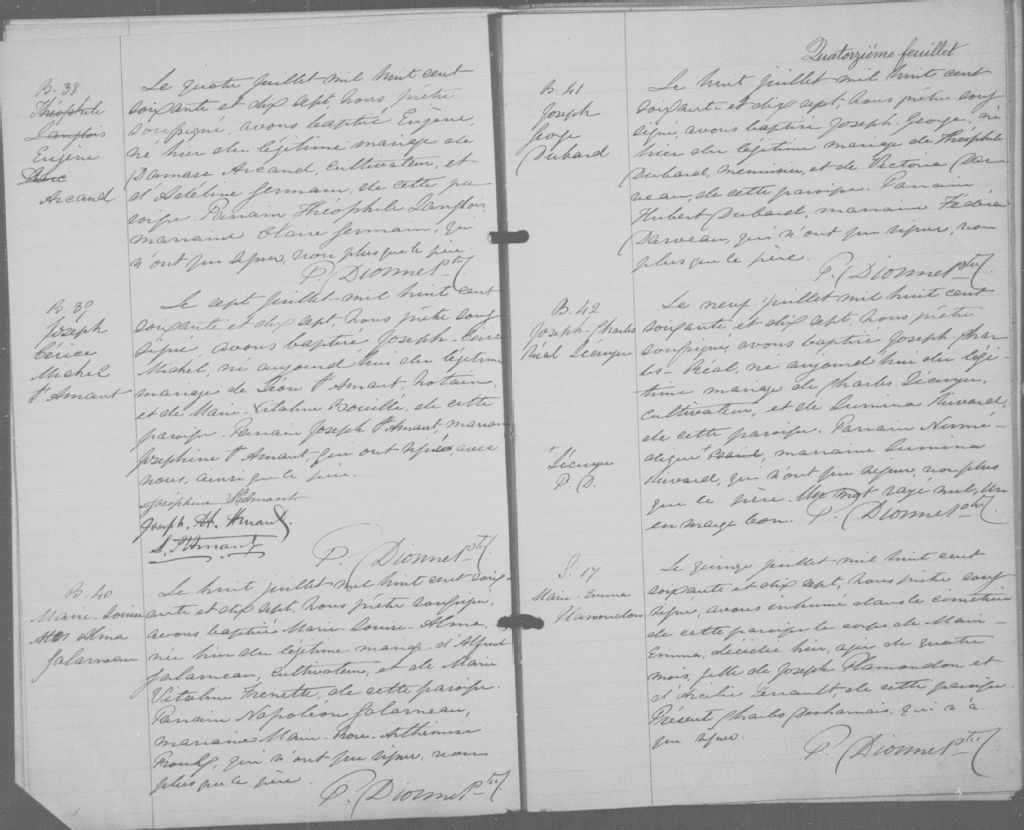 B. 38
Théophile
Langlois
Eugène
Arcand
Le quatre juillet mil huit cent
soixante et dix sept, nous prêtre
soussigné, avons baptisé Eugène,
né hier du légitime mariage de
Damase Arcand, cultivateur, et
d'Adéline Germain, de cette pa-
roisse. Parrain Théophile Langlois,
marraine Claire Germain, qui
n'ont pu signer, non plus que le père.
P. Dionne Ptre
B. 39
Joseph
Cérice
Michel
St Amant
Le sept juillet mil huit cent
soixante et dix sept, nous prêtre sous
signé, avons baptisé Joseph-Cérice
Michel, né aujourd'hui du légitime
mariage de Léon St Amant, notaire,
et de Marie-Vitaline Bouillé, de cette
paroisse. Parrain Joseph St Amant, marraine
Joséphine St Amant, qui ont signé avec
nous, ainsi que le père.
Joséphine St Amant
Joseph. St. Amant
L. St Amant
P. Dionne Ptre
B. 40
Marie-Louise
Alma
Galarneau
Le huit juillet mil huit cent soix-
ante et dix sept, nous prêtre soussigné,
avons baptisé Marie-Louise-Alma,
née hier du légitime mariage d'Alfred
Galarneau, cultivateur, et de Marie
Vitaline Frenette, de cette paroisse.
Parrain Napoléon Galarneau,
marraine Marie-Rose-Arthémise
qui n'ont pu signer, non
plus que le père.
P. Dionne Ptre
Quatorzième feuillet
B. 41
Joseph
George
Dubord
Le huit juillet mil huit cent
soixante et dix sept, nous prêtre sous
signé, avons baptisé Joseph George, né
hier du légitime mariage de Théophile
Dubord, menuisier, et de Victoria Dar-
veau, de cette paroisse. Parrain
Hubert Dubord, marraine
Darveau, qui n'ont pu signer, non
plus que le père.
P. Dionne Ptre
B. 42
Joseph-Charles
Réal Lécuyer
Le neuf juillet mil huit cent
soixante et dix sept, nous prêtre
soussigné, avons baptisé Joseph-Char-
les-Réal, né aujourd'hui du légi-
time mariage de Charles Lécuyer,
cultivateur, et de Lumina Rivard,
de cette paroisse. Parrain Numé-
marraine Lumina
Rivard, qui n'ont pu signer, non plus
que le père. Un mot rayé nul, Un
en marge bon. P. Dionne Ptre
Lécuyer
P. D.
S. 17
Marie-Emma
Plamondon
Le quinze juillet mil huit cent
soixante et dix sept, nous prêtre sous
signé, avons inhumé dans le cimetière
de cette paroisse le corps de Marie-
Emma, décédée hier, âgée de quatre
mois, fille de Joseph Plamondon et
d'Arcélie de cette paroisse.
Présent Charles Deshamais, qui n'a
pu signer.
P. Dionne Ptre